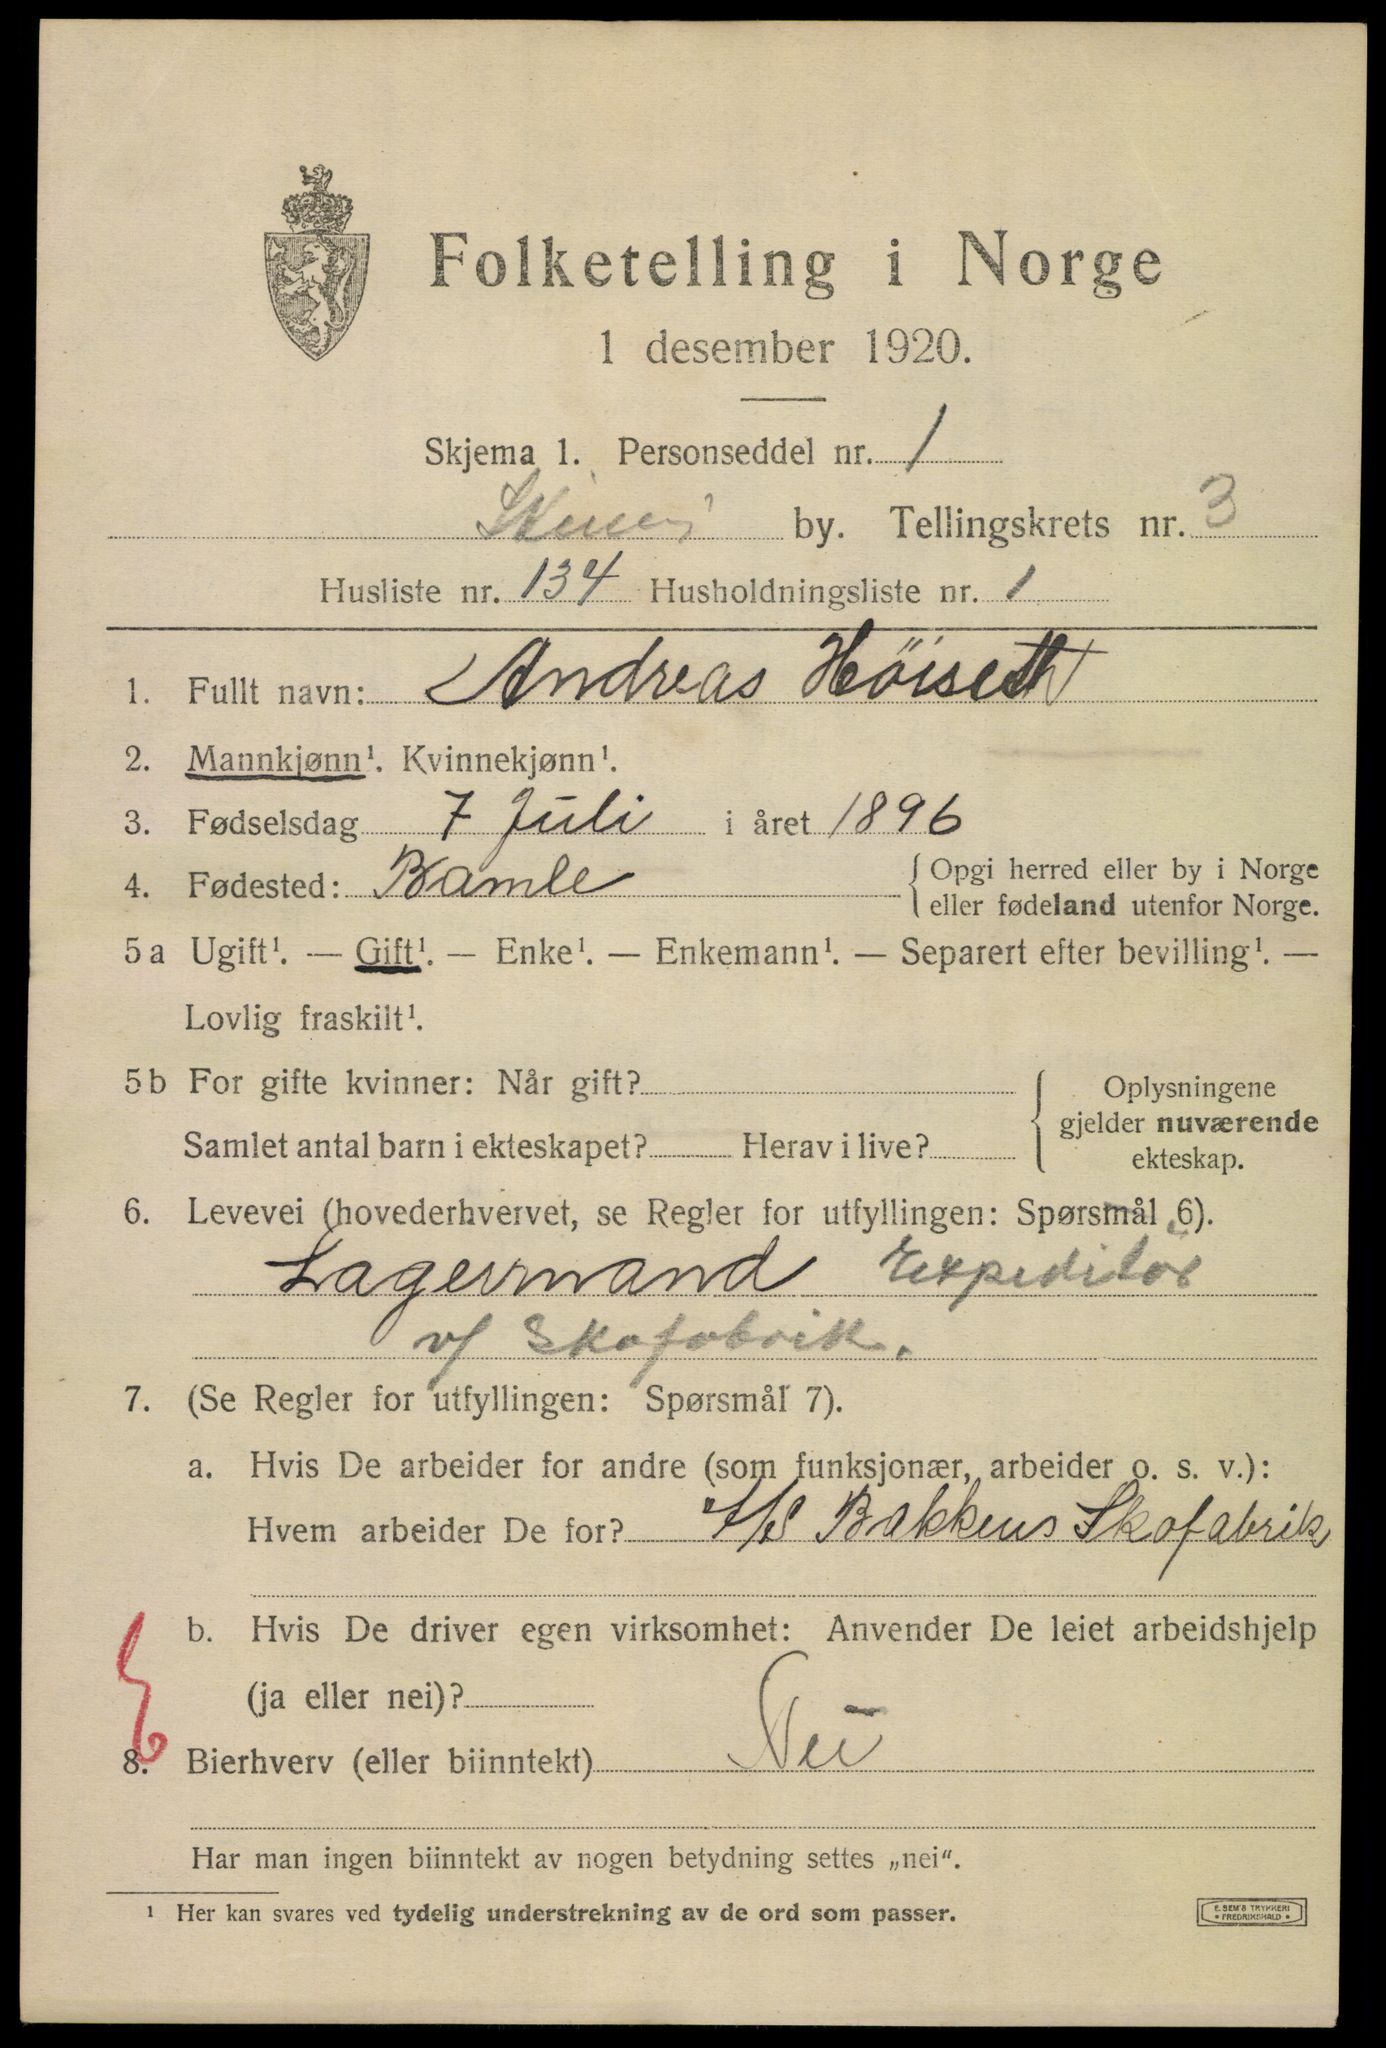 Folketelling i Norge
1 desember 1920.
Skjema 1. Personseddel nr. 1
by. Tellingskrets nr. 3
Husliste nr. 134 Husholdningsliste nr. 1
1. Fullt navn: Andreas Höiseth
2. Mannkjønn¹. Kvinnekjønn¹.
3. Fødselsdag 7 Juli i året 1896
4. Fødested: Bamle
{ Opgi herred eller by i Norge
eller fødeland utenfor Norge.
5 a Ugift¹. — Gift¹. — Enke¹. — Enkemann¹. — Separert efter bevilling¹. —
Lovlig fraskilt¹.
5 b For gifte kvinner: Når gift?
Samlet antal barn i ekteskapet? Herav i live?
{ Oplysningene
gjelder nuværende
ekteskap.
6. Levevei (hovederhvervet, se Regler for utfyllingen: Spørsmål 6).
Lagermand Expeditör
v/ Skofabrik.
7. (Se Regler for utfyllingen: Spørsmål 7).
a. Hvis De arbeider for andre (som funksjonær, arbeider o. s. v.):
Hvem arbeider De for? A/S Bakkens Skofabrik
b. Hvis De driver egen virksomhet: Anvender De leiet arbeidshjelp
(ja eller nei)?
8. Bierhverv (eller biinntekt) Nei
Har man ingen biinntekt av nogen betydning settes „nei“.
¹ Her kan svares ved tydelig understrekning av de ord som passer.
E. SEM'S TRYKKERI
• FREDRIKSHALD •